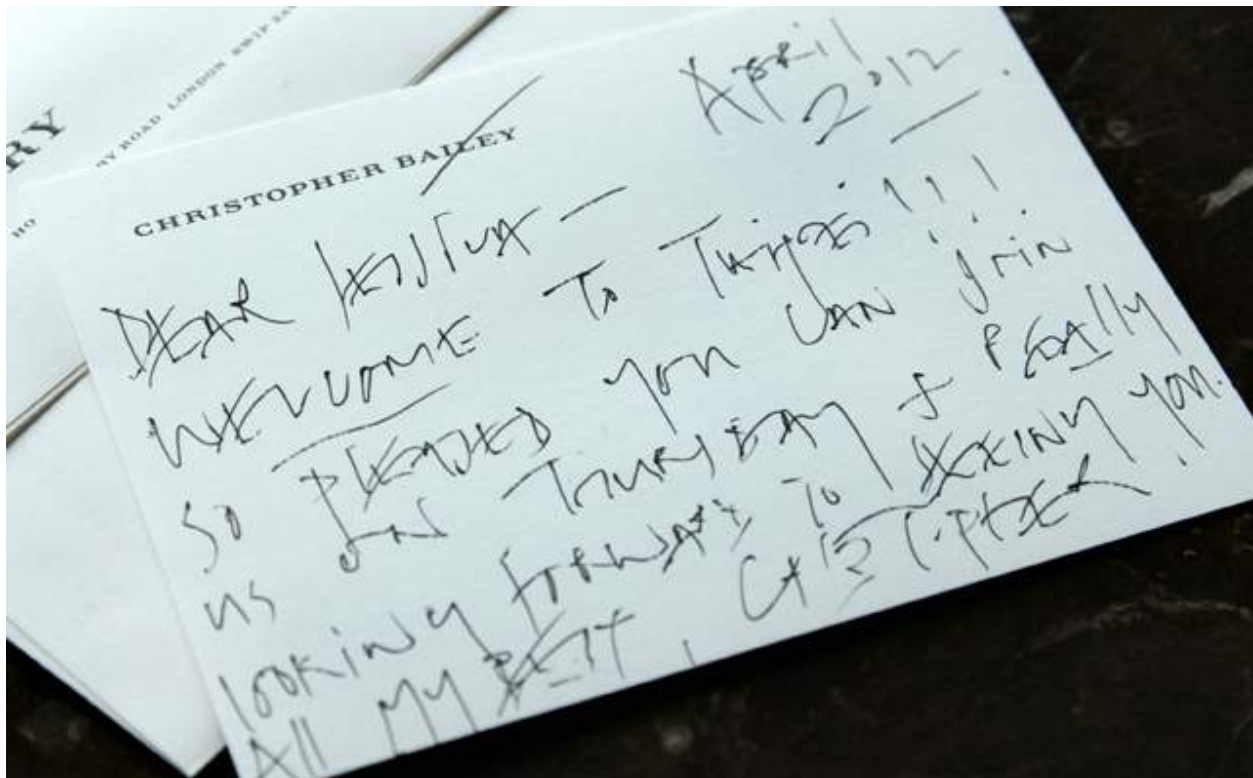 RY
RY ROAD LONDON SW1P 2A
HO
CHRISTOPHER BAILEY
April
2012
DEAR
WELCOME TO TAIPEI!!!
SO PLEASED YOU CAN join
us ON THURSDAY & REAlly
lOOKiNg FORWARD TO SEEINg YOU.
All MY BEST, CHRISTOPHER